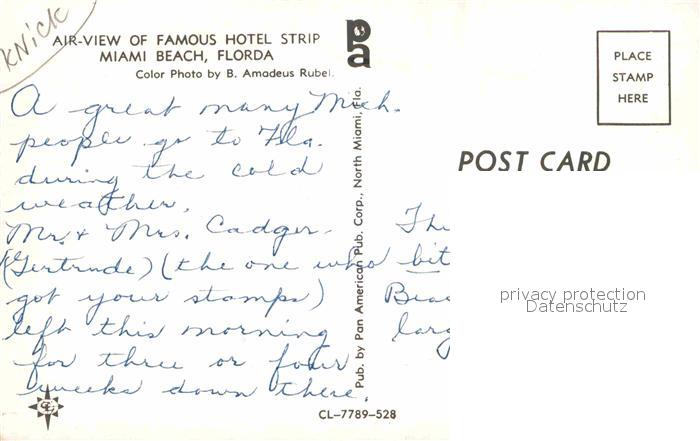 KNICK
AIR-VIEW OF FAMOUS HOTEL STRIP
MIAMI BEACH, FLORDA
Color Photo by B. Amadeus Rubel.
A great many Mich.
people go to Fla.
during the cold
weather.
Mr. & Mrs. Cadger-
(Gertrude) (the one who
got your stamps)
left this morning
for three or four
weeks down there.
pa
Pub. by Pan American Pub. Corp., North Miami, Fla.
CL-7789-528
PLACE
STAMP
HERE
POST CARD
Thi
bit
Beac
larg
privacy protection
Datenschutz